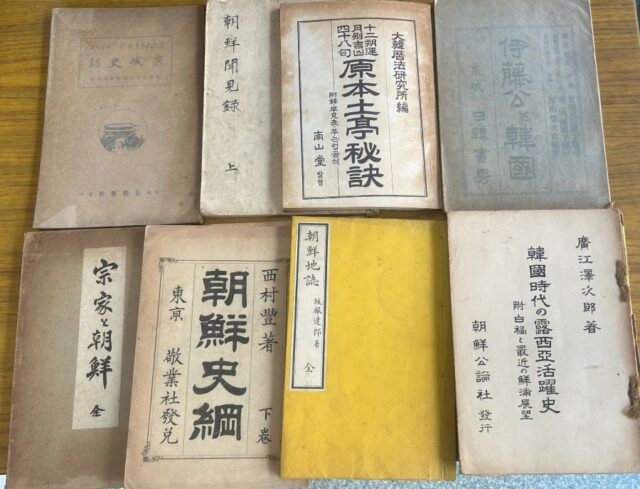 京城史話
朝鮮聞見録 上
大韓曆法研究所編
十二朔運
月別吉凶
四十八句
原本土亭秘訣
南山堂 발행
伊藤公と韓國
日韓書房
宗家と朝鮮 全
西村豊著
朝鮮史綱 下巻
東京 敬業社發兌
朝鮮地誌 坂根達郎著 全
廣江澤次郎著
韓國時代の露西亞活躍史
附白楊と最近の鮮滿展望
朝鮮公論社發行